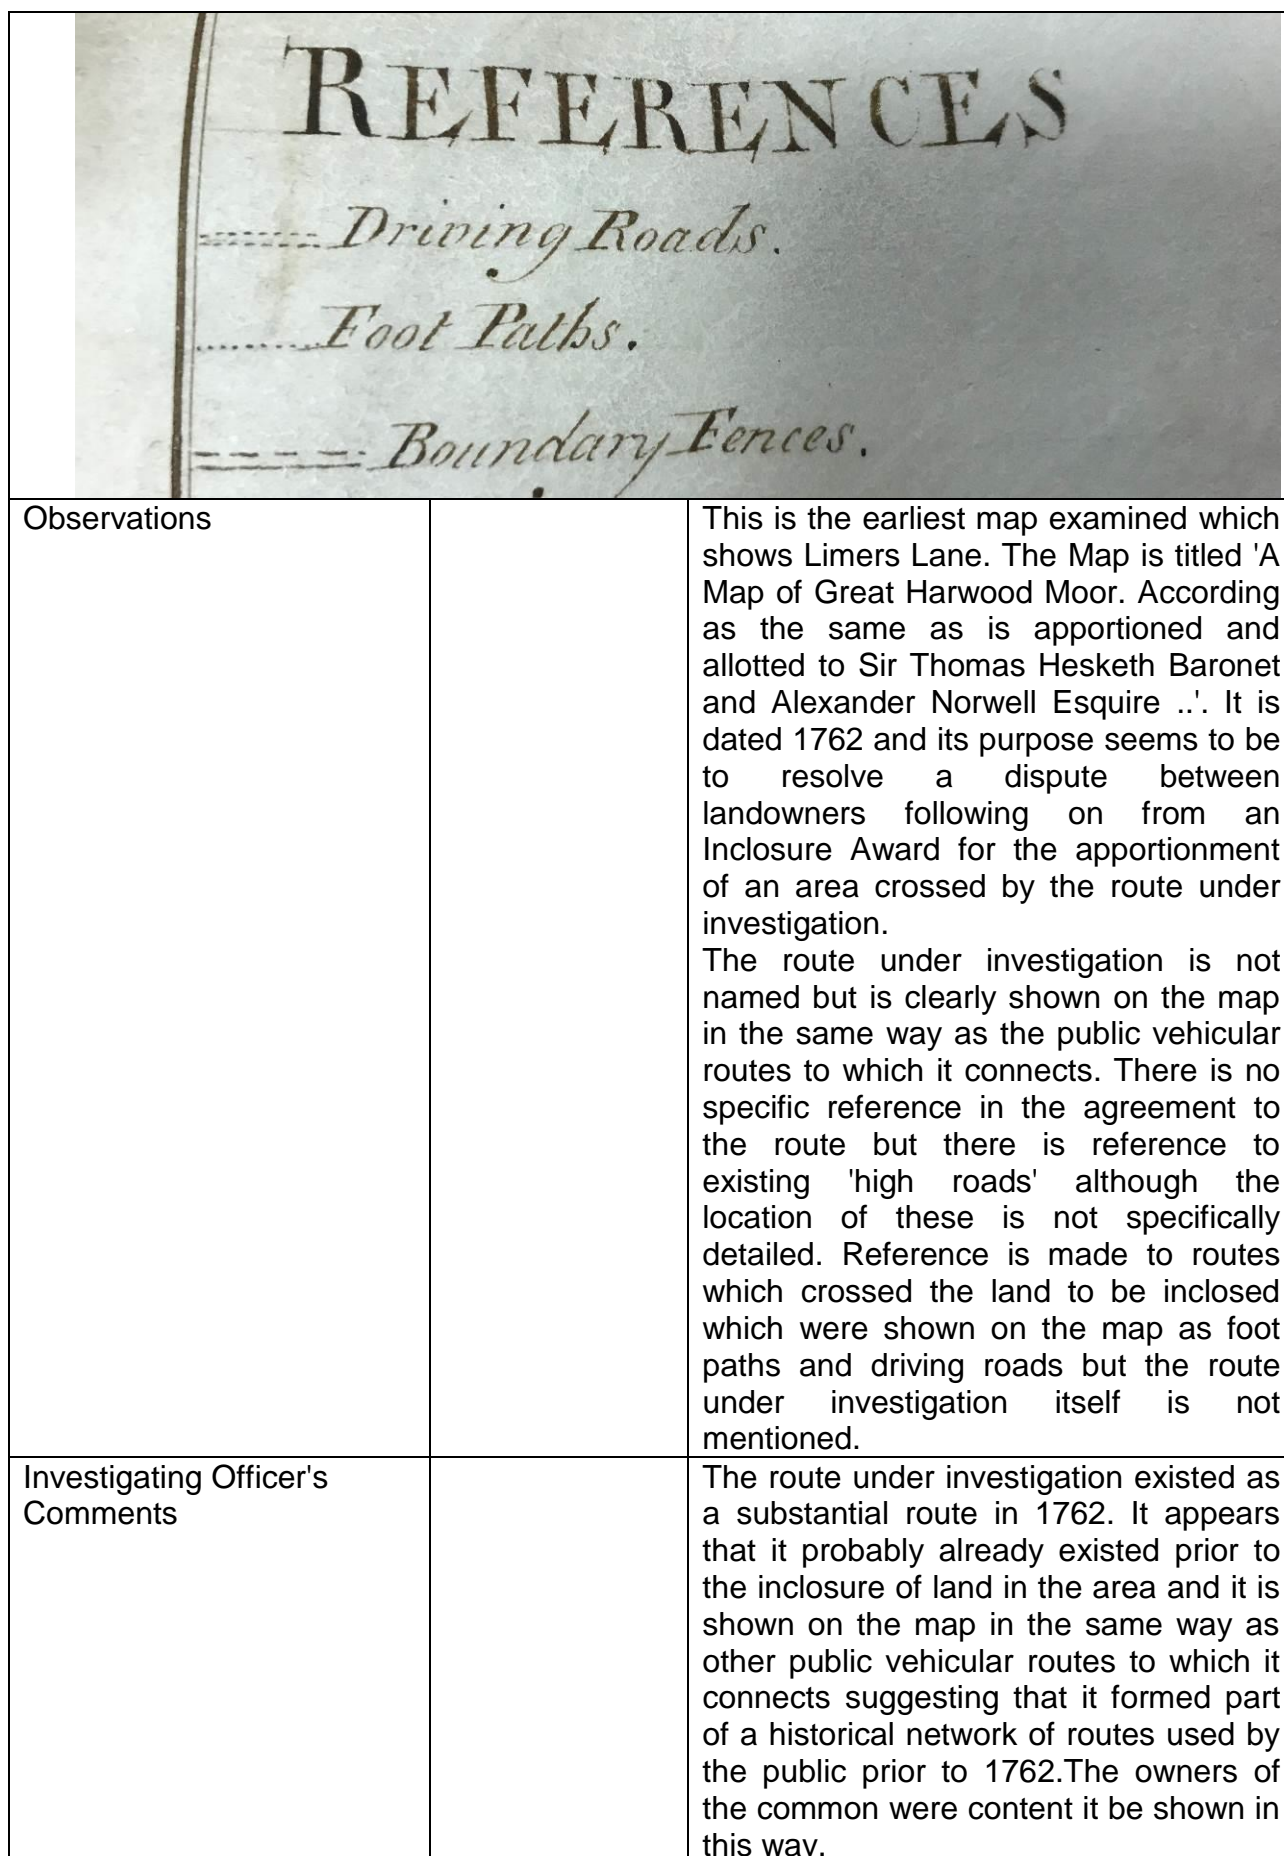 REFERENCES
Driving Roads.
Foot Paths.
Boundary Fences.
Observations
This is the earliest map examined which
shows Limers Lane. The Map is titled 'A
Map of Great Harwood Moor. According
as the same as is apportioned and
allotted to Sir Thomas Hesketh Baronet
and Alexander Norwell Esquire ..'. It is
dated 1762 and its purpose seems to be
to resolve a dispute between
landowners following on from an
Inclosure Award for the apportionment
of an area crossed by the route under
investigation.
The route under investigation is not
named but is clearly shown on the map
in the same way as the public vehicular
routes to which it connects. There is no
specific reference in the agreement to
the route but there is reference to
existing 'high roads' although the
location of these is not specifically
detailed. Reference is made to routes
which crossed the land to be inclosed
which were shown on the map as foot
paths and driving roads but the route
under investigation itself is not
mentioned.
Investigating Officer's
Comments
The route under investigation existed as
a substantial route in 1762. It appears
that it probably already existed prior to
the inclosure of land in the area and it is
shown on the map in the same way as
other public vehicular routes to which it
connects suggesting that it formed part
of a historical network of routes used by
the public prior to 1762.The owners of
the common were content it be shown in
this way.